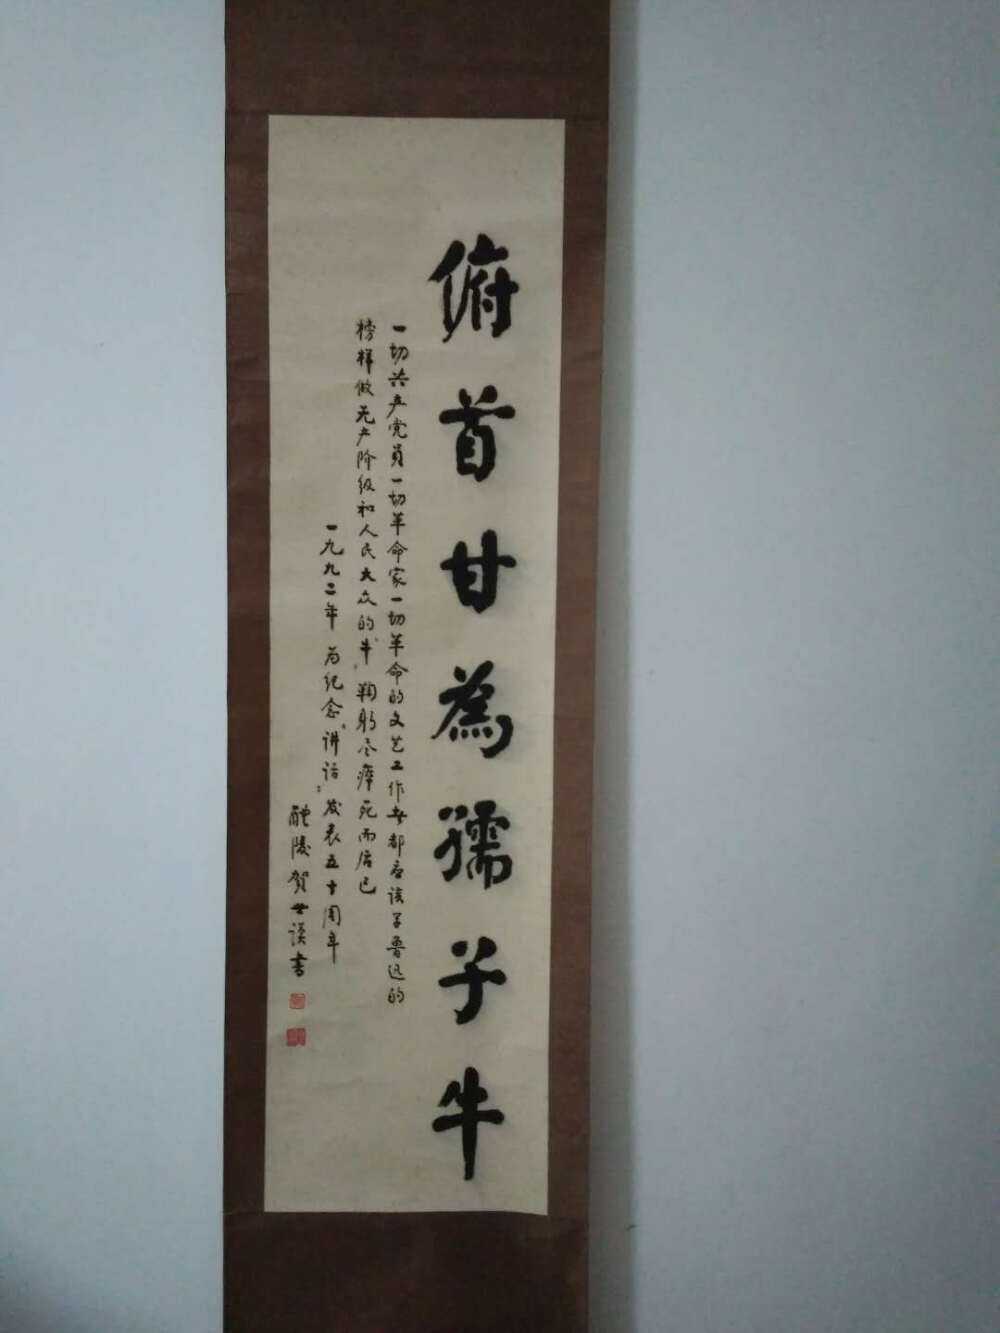 俯首甘為孺子牛
一切共产党员一切革命家一切革命的文艺工作者都应该学鲁迅的
榜样做无产阶级和人民大众的“牛”鞠躬尽瘁死而后已
一九九二年为纪念“讲话”发表五十周年
醴陵贺世谟书